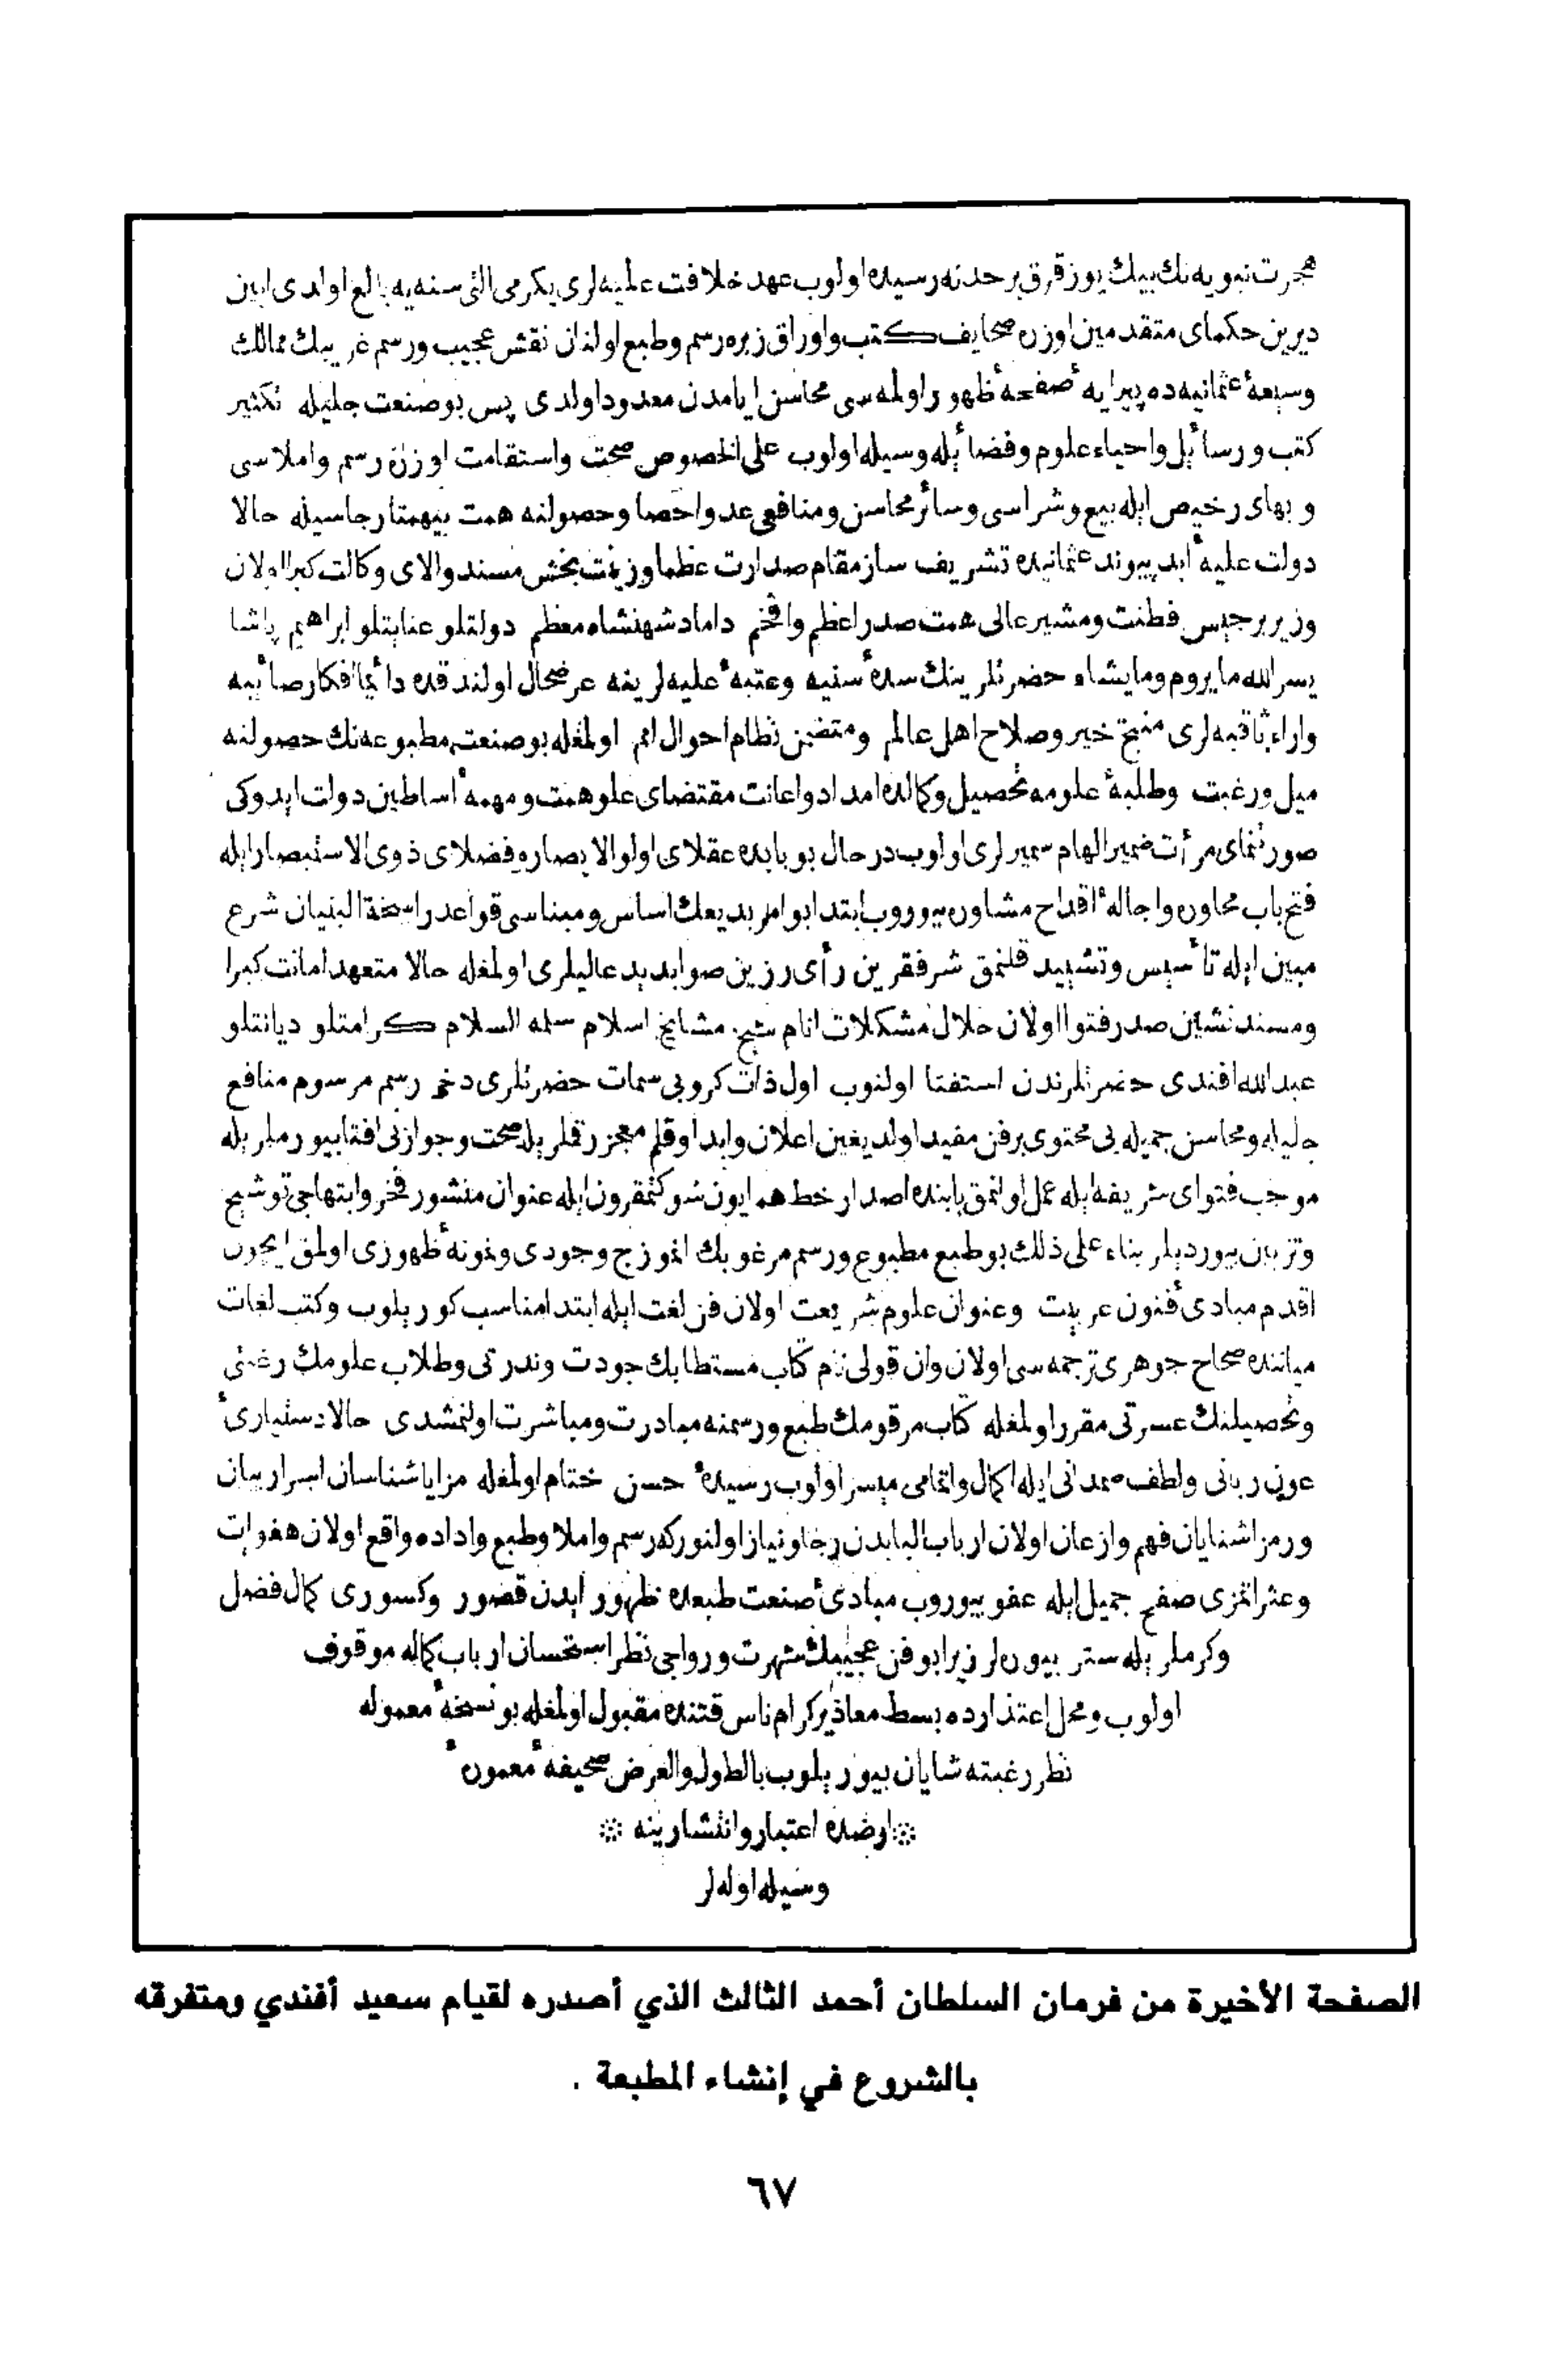 هجرت نبويه نك بيك يوز قرق بر حدنه رسيده اولوب عهد خلافت عليه لرى يكرمى التى سنه يه بالغ اولدى ايين
ديرين حكماى متقدمين اوزره صحايف كتب واوراق زبره رسم وطبع اولنان نقش عجيب ورسم غريبك ممالك
وسيعهٔ عثمانيه ده پيرايهٔ صفحهٔ ظهور اولمه سى محاسن ايامدن معدود اولدى پس بو صنعت جليله تكثير
كتب ورسائل واحياء علوم وفضائله وسيله اولوب على الخصوص صحت واستقامت اوزره رسم واملاسى
وبهاى رخيص ايله بيع وشراسى وسائر محاسن ومنافع عد واحصا وحصولنه همت بيهمتا رجاسيله حالا
دولت عليهٔ ابد پيوند عثمانيده تشريف ساز مقام صدارت عظما وزينت بخش مسند والاى وكالت كبرا اولان
وزير برجيس فطنت ومشير عالى همت صدر اعظم وافخم داماد شهنشاه معظم دولتلو عنايتلو ابراهيم پاشا
يسر الله ما يروم وما يشاء حضرتلرينك سدهٔ سنيه وعتبهٔ عليه لرينه عرضحال اولندقده دائما افكار صائبه
واراء ثاقبه لرى منتج خير وصلاح اهل عالم ومتضمن نظام احوال امم اولمغله بو صنعت مطبوعه نك حصولنه
ميل ورغبت وطلبهٔ علومه تحصيل وكمالده امداد واعانت مقتضاى علو همت ومهمهٔ اساطين دولت ايدوكى
صورتنماى مرأت ضمير الهام سميرلرى اولوب در حال بو بابده عقلاى اولو الابصار وفضلاى ذوى الاستبصار ايله
فتح باب محاوره واجالهٔ اقداح مشاوره بيوروب ابتدا بو امر بديعك اساس ومبناسى قواعد راسخة البنيان شرع
مبين ايله تأسيس وتشييد قلنمق شرفقرين رأى رزين صوابديد عاليلرى اولمغله حالا متعهد امانت كبرا
ومسند نشين صدر فتوا اولان حلال مشكلات انام شيخ مشايخ اسلام سلمه السلام كرامتلو ديانتلو
عبد الله افندى حضرتلرندن استفتا اولنوب اول ذات كروبى سمات حضرتلرى دخى رسم مرسوم منافع
جليله ومحاسن جميله يى محتوى بر فن مفيد اولديغين اعلان وابدا وقلم معجز رقملريله صحت وجوازنى افتا بيورملريله
موجب فتواى شريفه ايله عمل اولنمق بابنده اصدار خط همايون شوكتمقرون ايله عنوان منشور فخر وابتهاجى توشيح
وتزيان بيورديلر بناء على ذلك بو طبع مطبوع ورسم مرغوبك انموزج وجودى ونمونهٔ ظهورى اولمق ايچون
اقدم مبادئ فنون عربيت وعنوان علوم شريعت اولان فن لغت ايله ابتدا مناسب كوريلوب وكتب لغات
مياننده صحاح جوهرى ترجمه سى اولان وان قولى نام كتاب مستطابك جودت وندرتى وطلاب علومك رغبتى
وتحصيلنك عسرتى مقرر اولمغله كتاب مرقومك طبع ورسمنه مبادرت ومباشرت اولنمشدى حالا دستيارئ
عون ربانى ولطف صمدانى ايله اكمال واتمامى ميسر اولوب رسيدهٔ حسن ختام اولمغله مزايا شناسان اسرار بيان
ورمز اشنايان فهم وازعان اولان ارباب البابدن رجا ونياز اولنور كه رسم واملا وطبع واداده واقع اولان هفوات
وعثراتمزى صفح جميل ايله عفو بيوروب مبادئ صنعت طبعده ظهور ايدن قصور وكسورى كمال فضل
وكرملريله ستر بيوره لر زيرا بو فن عجيبك شهرت ورواجى نظر استحسان ارباب كماله موقوف
اولوب ومحل اعتذارده بسط معاذير كرام ناس قتنده مقبول اولمغله بو نسخهٔ معموله
نظر رغبته شايان بيوريلوب بالطول والعرض صحيفهٔ معمورهٔ
※ ارضده اعتبار وانتشارينه ※
وسيله اوله لر
الصفحة الأخيرة من فرمان السلطان أحمد الثالث الذي أصدره لقيام سعيد أفندي ومتفرقه
بالشروع في إنشاء المطبعة .
٦٧